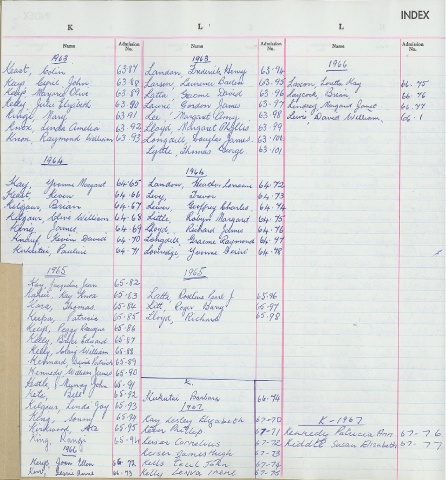 INDEX
K
L
L
Name
Admission No.
Name
Admission No.
Name
Admission No.
1963
Keast, Colin 63.87
Kays John 63.88
Keep Marjorie Olive 63.89
Kelly Julie Elizabeth 63.90
Mary 63.91
Knox, Linda Amelia 63.92
Knox Raymond William 63.93
1964
Kay, Yvonne Margaret 64.65
Keast Keven 64.66
Kilgour, Brian 64.67
Kilgour, Clive William 64.68
King James 64.69
Kevin David 64.70
Pauline 64.71
1965
Kay, Jacqueline Jean 65-82
Kay 65-83
Thomas 65-84
Patricia 65-85
Keys, Peggy 65-86
Kelly, Edward 65-87
Kelly, William 65-88
David Patrick 65-89
Kennedy William James 65-90
Kettle, Murray John 65-91
Kite, Bill 65-92
Kilgour, Linda Gay 65-93
King, Sonny 65-94
Kirkwood 65-95
King, 65-96
1966
Keys John Allen 66.72
66-73
1963
Landon, Frederick Henry 63-94
Larsen, Laurence Darien 63-95
Latta Graeme David 63-96
Laurie Gordon James 63-97
Lee, Margaret Amy 63-98
Lloyd, Margaret Phyllis 63-99
Longdill Douglas James 63-100
Lyttle Thomas George 63-101
1964
Landon, Heather Lorraine 64-72
Levy, Trevor 64-73
Lewer, Geoffrey Charles 64-74
Little, Robyn Margaret 64-75
Lloyd, Richard James 64-76
Longdill, Graeme Raymond 64-77
Yvonne 64-78
1965
Latta, Roseline J 65-96
Litt, Roger Barry 65-97
Lloyd, Richard 65-98
K.
Barbara 66-74
1967
Kay Lesley Elizabeth 67-70
Philip 67-71
Keiser Cornelius 67-72
Keiser James Hugh 67-73
Kells Cecil John 67-74
Kells Lenva Irene 67-75
1966
Lawson, Loretta Kay 66-75
Laycock, Brian 66-76
Lindsay Margaret Jones 66-77
Lewis David William 66-1
K - 1967
Kennedy Patricia Ann 67-76
Kiddle Susan Elizabeth 67-77